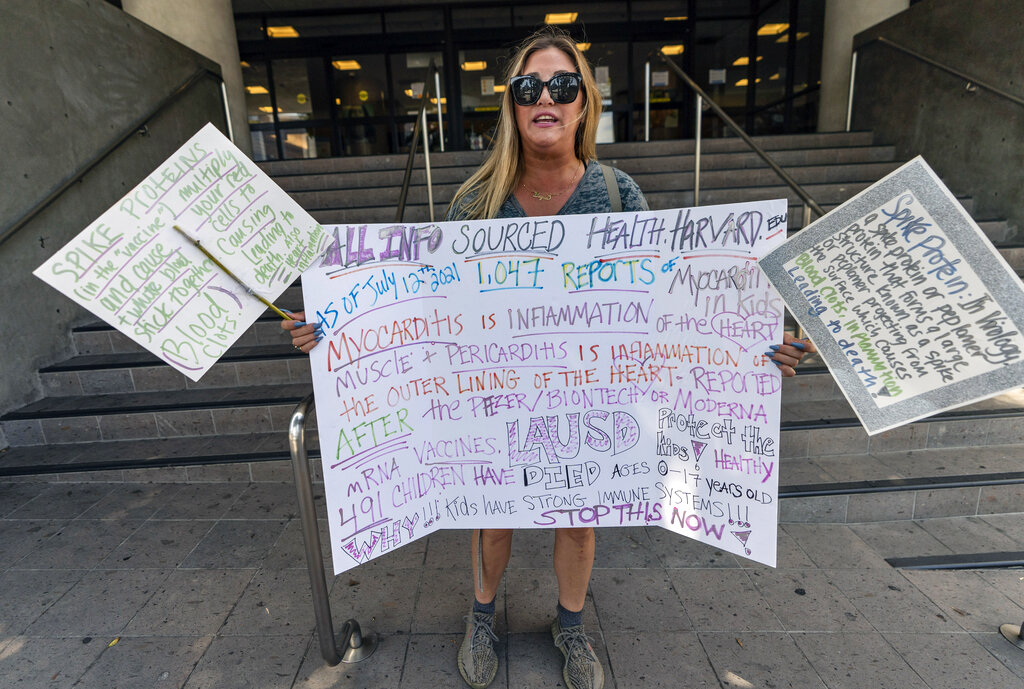 SPIKE PROTEINS
in the "vaccine" multiply
and cause your red
+ white blood cells to
stick together causing
Blood
Clots!
ALL INFO SOURCED HEALTH.HARVARD.EDU
AS OF July 12TH 2021 1,047 REPORTS of MYOCARDITIS
in KIDS
MYOCARDITIS IS INFlAMMATION OF the HEART
MUSCLE + PERICARDITIS IS INFlAMMATION OF
the OUTER LINING OF the HEART - REPORTED
AFTER the PFIZER/BIONTECH OR MODERNA
mRNA VACCINES. LAUSD Protect the
Kids! HEALTHY
491 CHILDREN HAVE DIED AGES 0-17 YEARS OLD
WHY!!! Kids HAVE STRONG IMMUNE SYSTEMS!!!
STOP THIS NOW!
Spike Protein: In Virology,
a spike protein or peplomer
protein that forms a large
structure known as a spike
or peplomer projecting from
the surface which causes
Blood Clots inflammation
Leading to death!